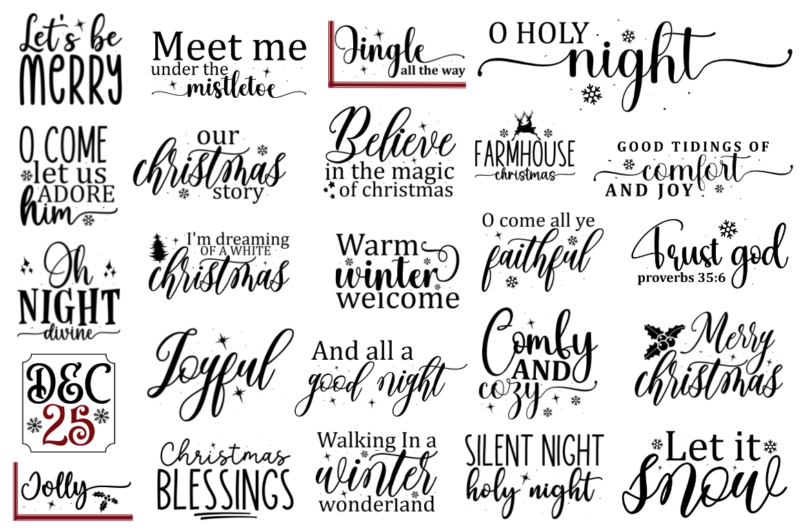 Let's be
MERRY
Meet me
under the
mistletoe
Jingle
all the way
O HOLY
night
O COME
let us
ADORE
him
our
christmas
story
Believe
in the magic
of christmas
FARMHOUSE
christmas
GOOD TIDINGS OF
comfort
AND JOY
Oh
NIGHT
divine
I'm dreaming
OF A WHITE
christmas
Warm
winter
welcome
O come all ye
faithful
Trust god
proverbs 35:6
DEC
25
Joyful
And all a
good night
Comfy
AND
cozy
Merry
christmas
Jolly
Christmas
BLESSINGS
Walking In a
winter
wonderland
SILENT NIGHT
holy night
Let it
snow